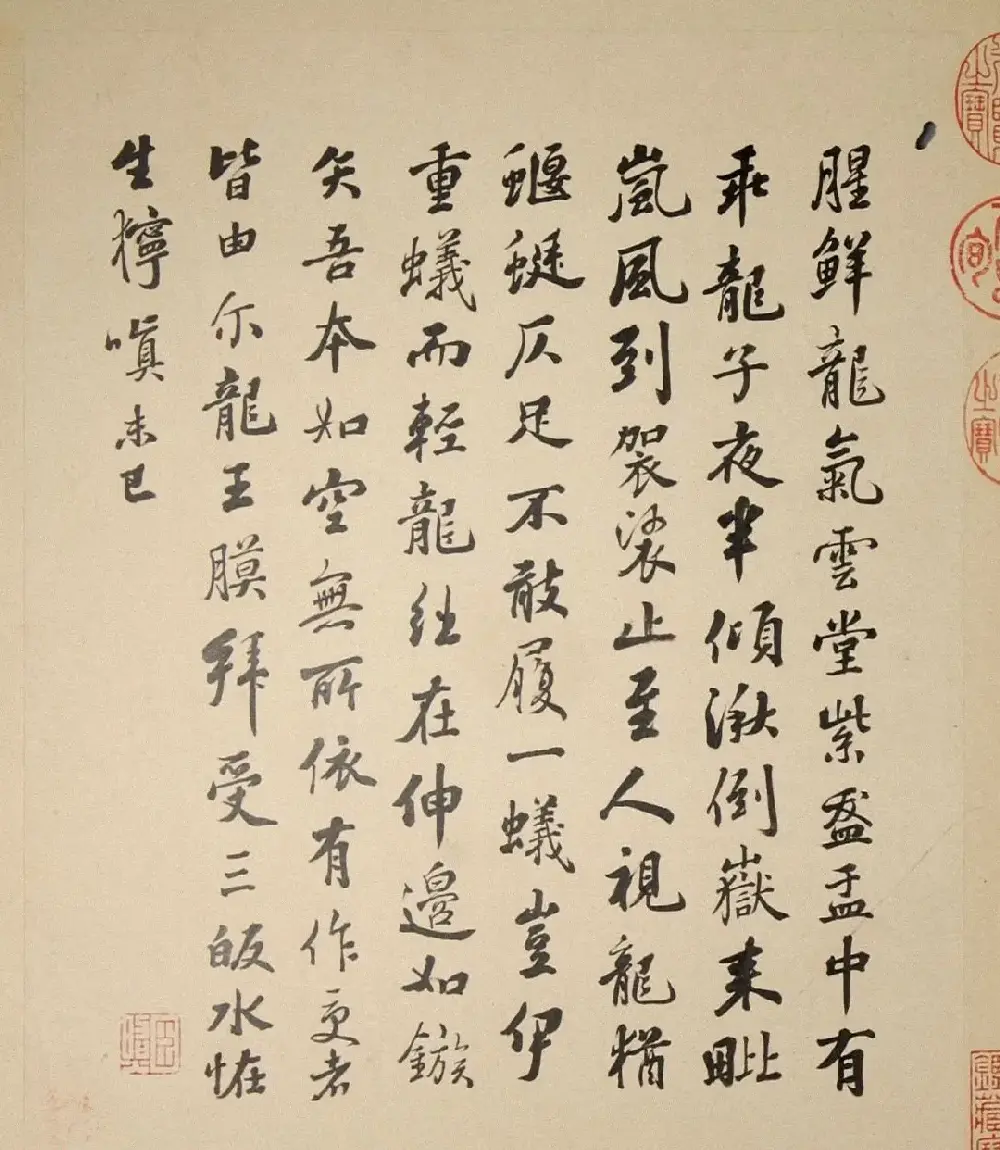 腥鮮龍氣雲堂紫盋盂中有
乖龍子夜半傾湫倒嶽来毗
嵐風到袈裟止至人視龍猶
蝘蜓仄足不敢履一蟻豈伊
重蟻而輕龍在伸邊如鏃
矣吾本如空無所依有作受者
皆由尔龍王膜拜受三皈水恠
生獰嗔未已
之寶
之寶